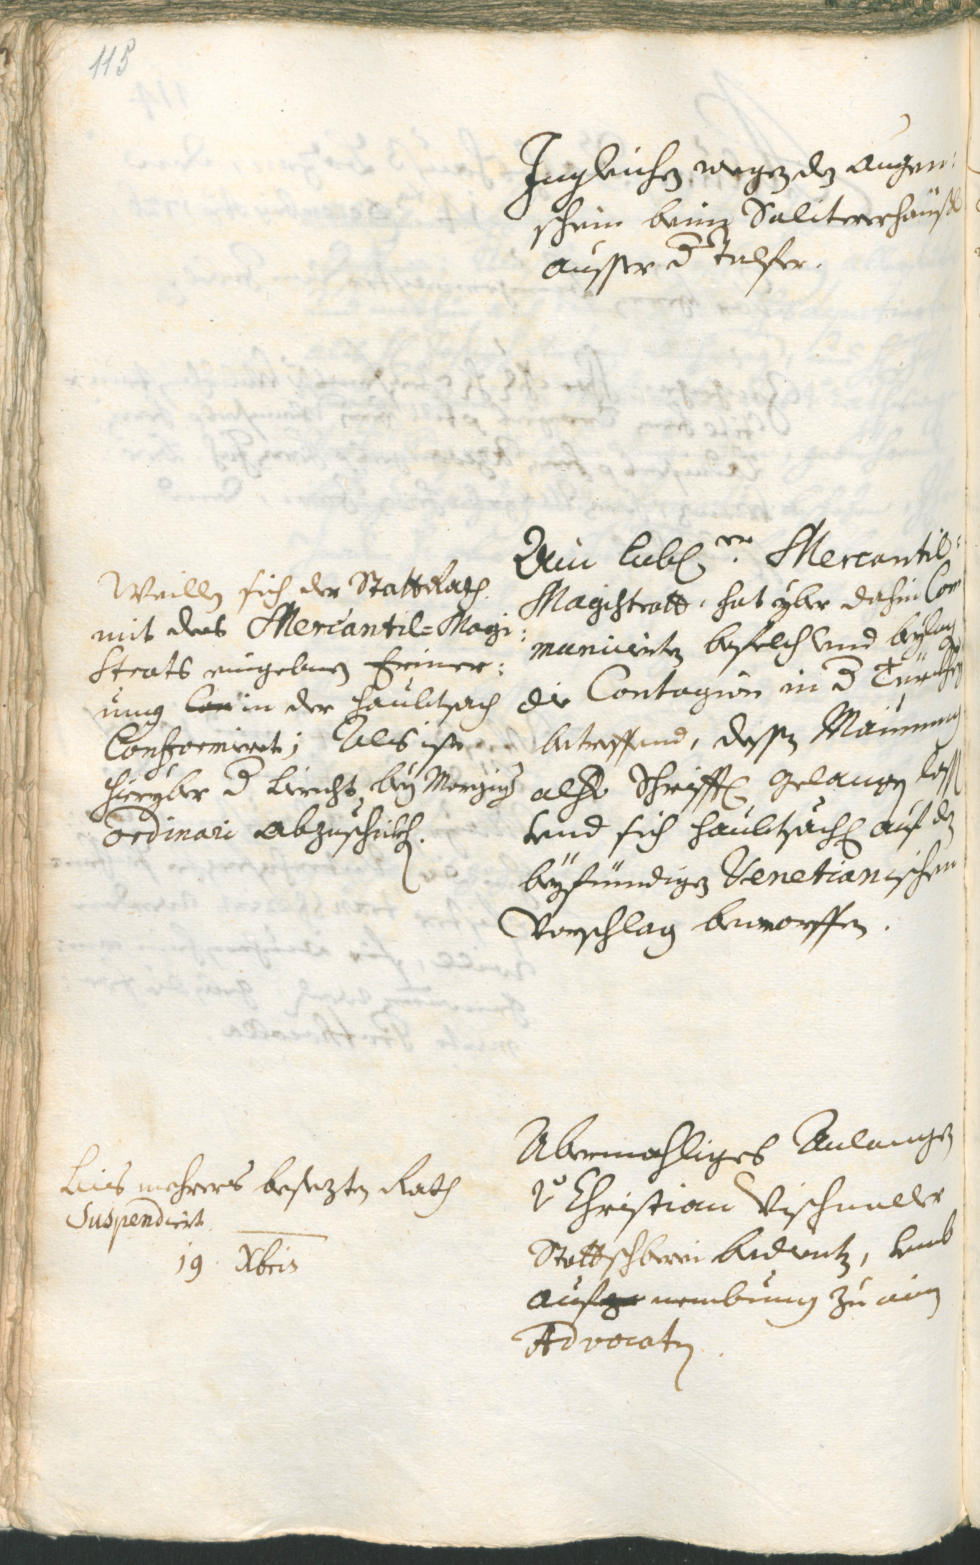 115
Ingleichen wegen des Augen:
schein beim Salitererhäusl
ausser d Talfer.
Weillen sich der StattRath
mit des Mercantil=Magi:
strats eingebnen Eriner:
ung in der haubtsach
Conformiert; Als ist
hieryber d bericht bey Morgiger
ordinari abzuschickhen.
Ain Lobl. Mercantil
Magistratt, hat yber dahin Com
municierten befelch und beylag
die Contagion in d Türckhey
betreffend, dessen Mainung
alher Schrifftl. gelangen lassen
und sich haubtsächl. auf den
beyfündigen Venetianischen
Vorschlag beworffen.
Bis mehrers besezten Rath
Suspendiert.
19 Xbris
Abermahliges Anlangen
Christian Vischnaller
Stattschreiberei bedientn, umb
auf nembung zu ainen
Advocaten.